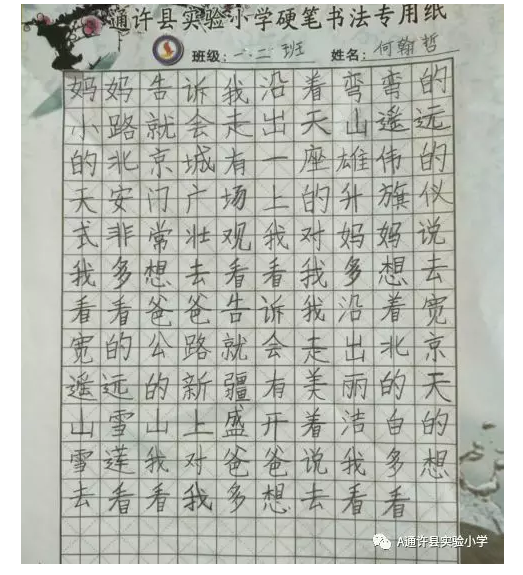 通许县实验小学硬笔书法专用纸
班级：一.二班 姓名：何翰哲
妈妈告诉我沿着弯弯的
小路就会走出天山遥远
的北京城有一座雄伟的
天安门广场上的升旗仪
式非常壮观我对妈妈说
我多想去看看我多想去
看看爸爸告诉我沿着宽
宽的公路就会走出北京
遥远的新疆有美丽的天
山雪山上盛开着洁白的
雪莲我对爸爸说我多想
去看看我多想去看看
A通许县实验小学